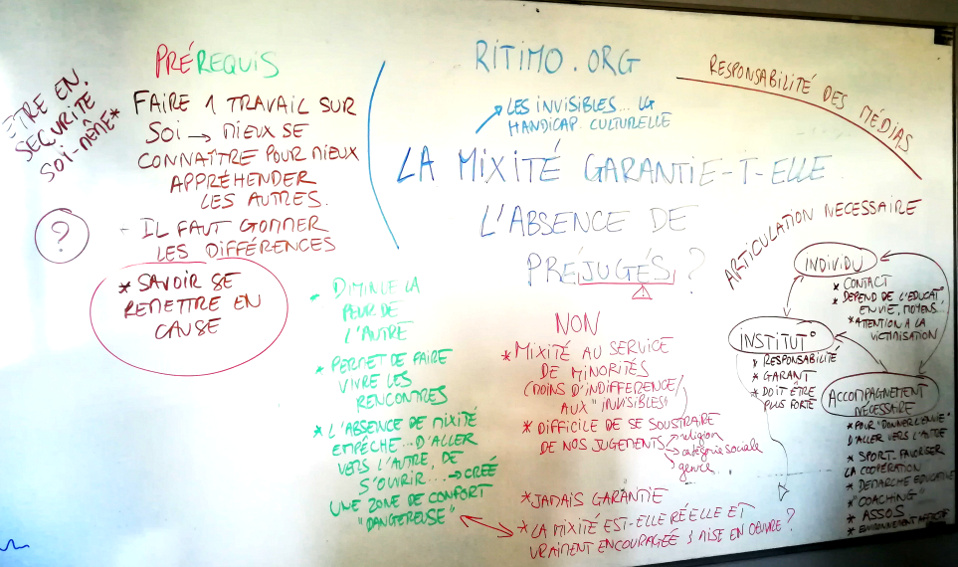 ÊTRE EN
SECURITÉ
SOI-MÊME*
PRÉREQUIS
FAIRE 1 TRAVAIL SUR
SOI → MIEUX SE
CONNAÎTRE POUR MIEUX
APPRÉHENDER
LES AUTRES.
- IL FAUT GOMMER
LES DIFFÉRENCES
?
* SAVOIR SE
REMETTRE EN
CAUSE
RITIMO.ORG
LES INVISIBLES... LG
HANDICAP CULTURELLE
LA MIXITÉ GARANTIE-T-ELLE
L'ABSENCE DE
PRÉJUGÉS ?
RESPONSABILITÉ DES MÉDIAS
- DIMINUE LA
PEUR DE
L'AUTRE
* PERMET DE FAIRE
VIVRE LES
RENCONTRES
* L'ABSENCE DE MIXITÉ
EMPÊCHE... D'ALLER
VERS L'AUTRE, DE
S'OUVRIR... → CRÉÉ
UNE ZONE DE CONFORT
"DANGEREUSE"
NON
* MIXITÉ AU SERVICE
DE MINORITÉS
(MOINS D'INDIFFERENCE/
AUX "INVISIBLES"
* DIFFICILE DE SE SOUSTRAIRE
DE NOS JUGEMENTS → religion
→ catégorie sociale
genre...
* JAMAIS GARANTIE
* LA MIXITÉ EST-ELLE RÉELLE ET
VRAIMENT ENCOURAGÉE & MISE EN OEUVRE ?
ARTICULATION NECESSAIRE
INDIVIDU
* CONTACT
* DEPEND DE L'EDUCAT°
ENVIE, MOYENS...
* ATTENTION A LA
VICTIMISATION
INSTITUT°
* RESPONSABILITÉ
* GARANT
* DOIT ÊTRE
PLUS FORTE
ACCOMPAGNEMENT
NÉCESSAIRE
* POUR "DONNER L'ENVIE"
D'ALLER VERS L'AUTRE
* SPORT. FAVORISER
LA COOPÉRATION
* DEMARCHE EDUCATIVE
* "COACHING"
* ASSOS
* ENVIRONNEMENT AFFECTIF